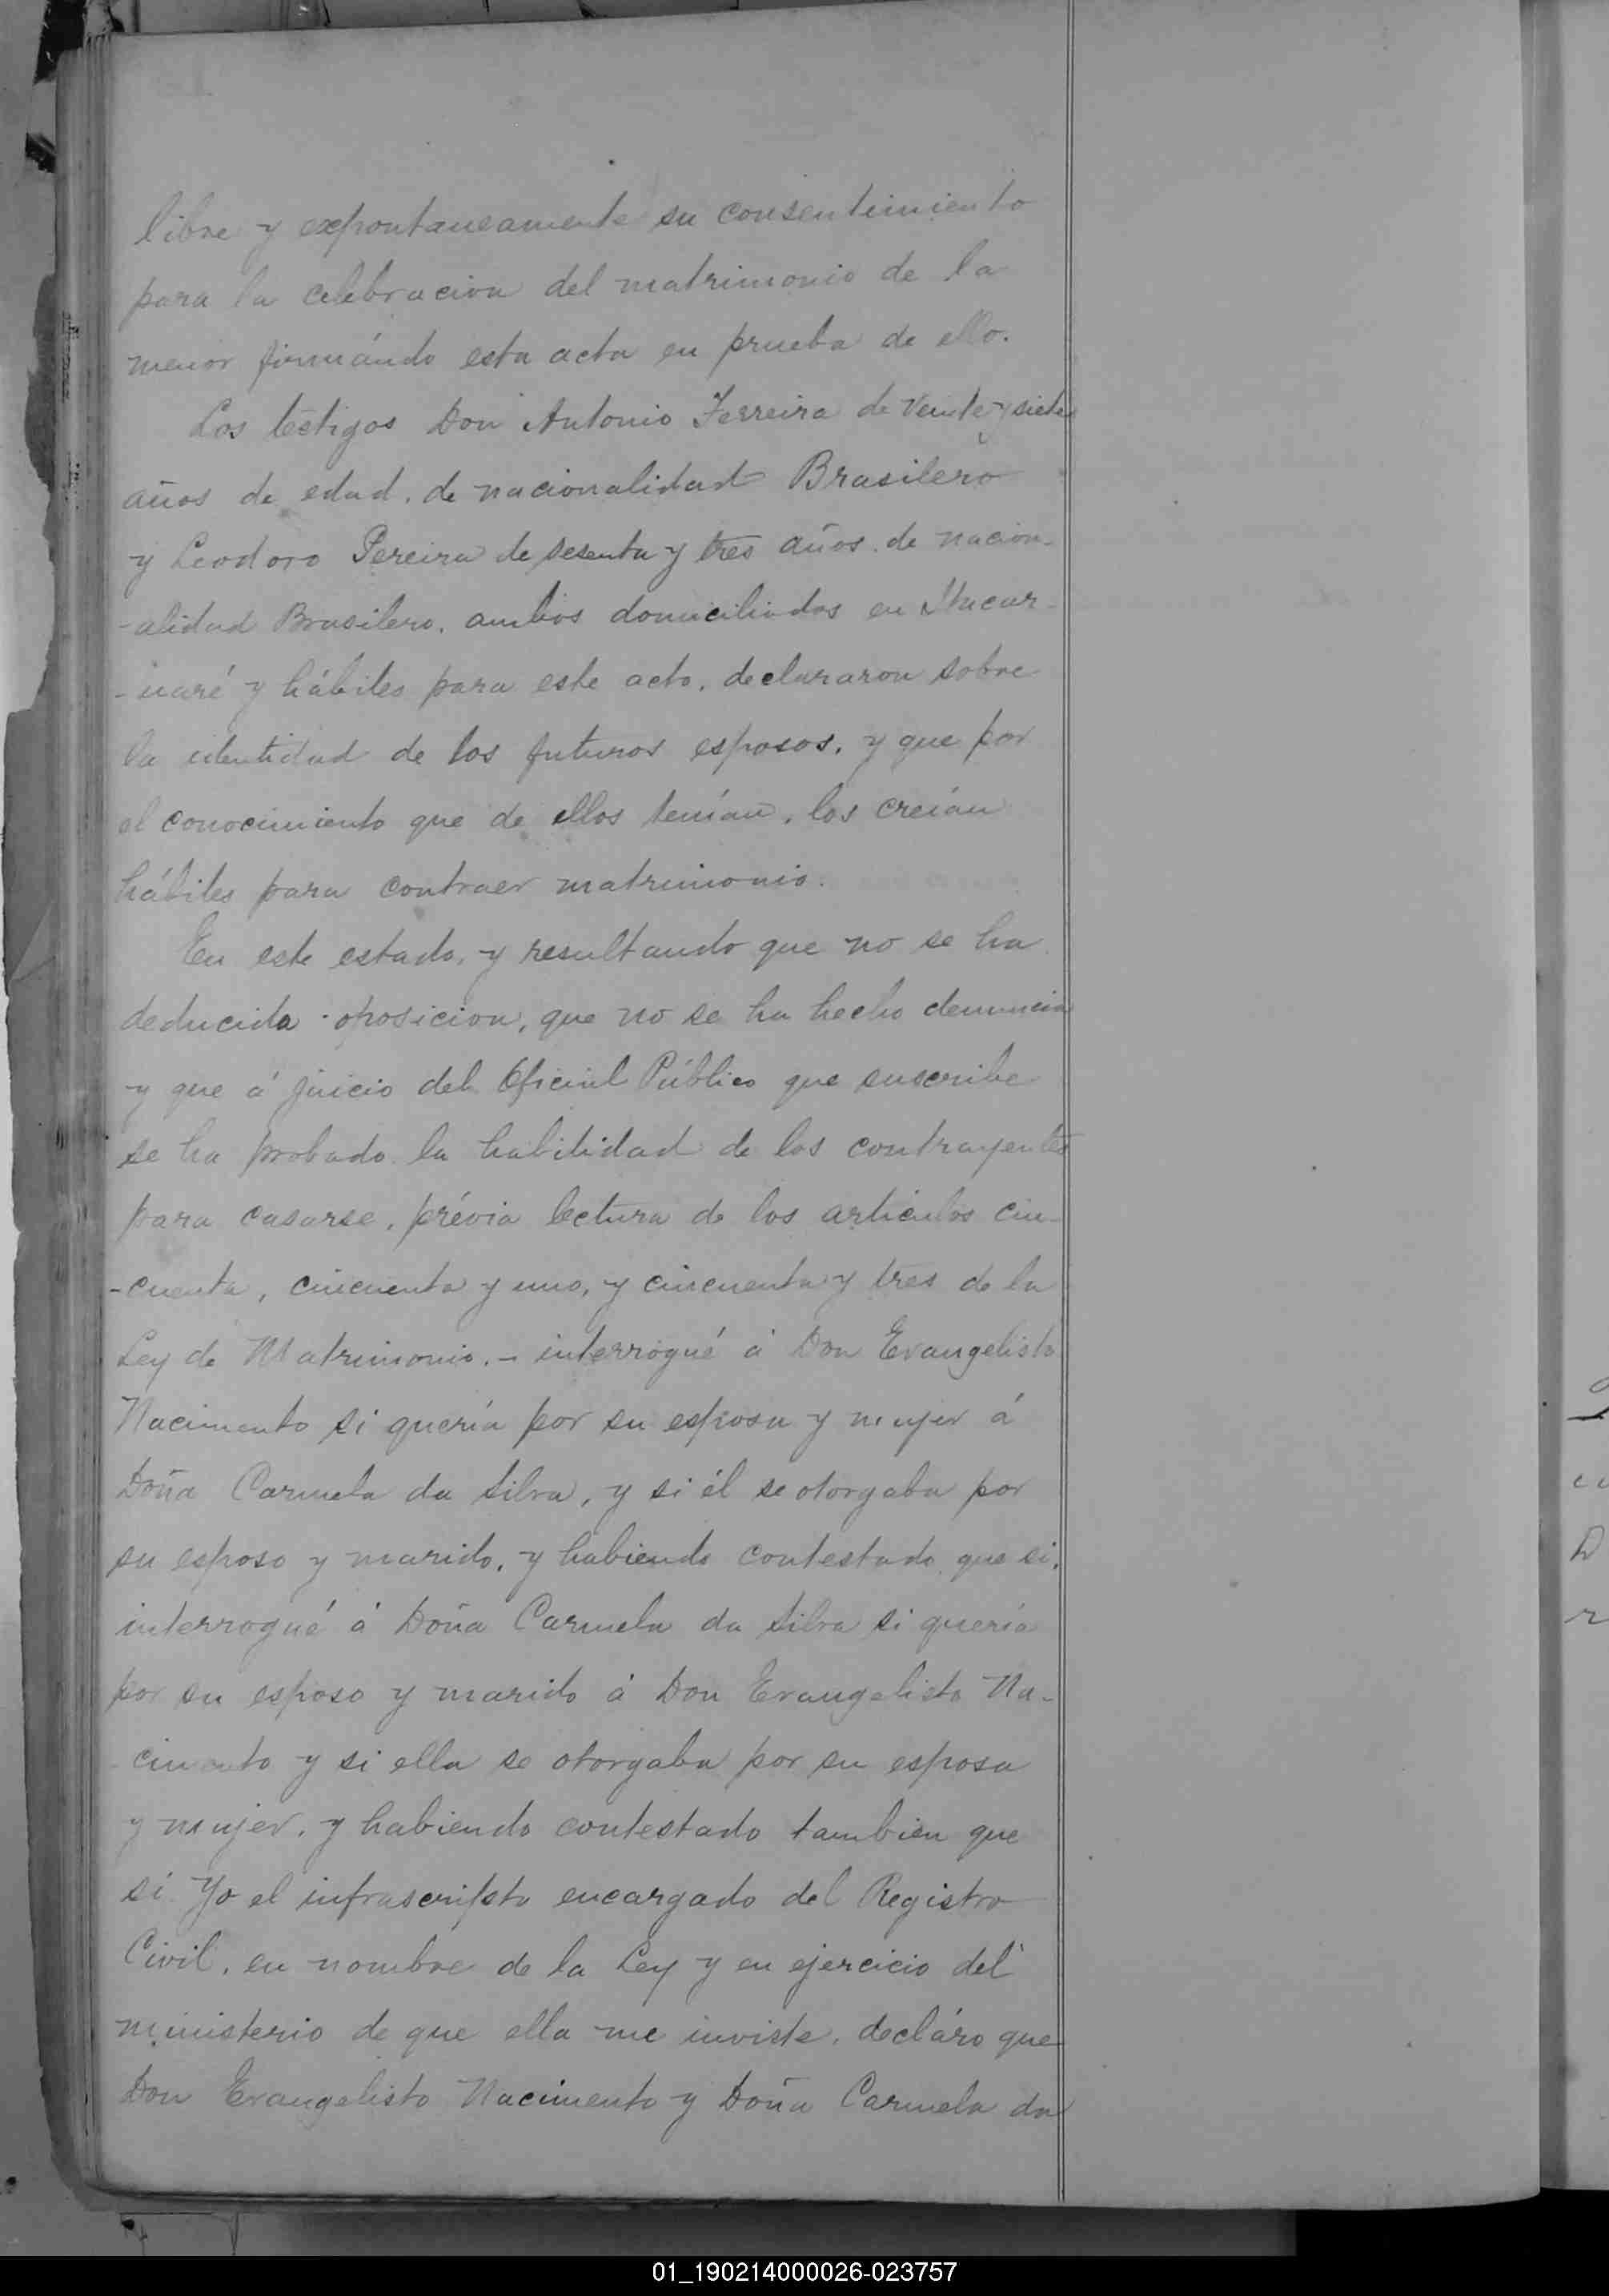 libre y expontaneamente su consentimiento
para la celebracion del matrimonio de la
menor firmándo esta acta en prueba de ello.
Los testigos Don Antonio Ferreira de veinte y siete
años de edad, de nacionalidad Brasilero
y Leodoro Pereira de sesenta y tres años, de nacion-
-alidad Brasilero, ambos domiciliados en Itacar-
-uaré y hábiles para este acto, declararon sobre
la identidad de los futuros esposos, y que por
el conocimiento que de ellos tenían, los creían
hábiles para contraer matrimonio.
En este estado, y resultando que no se ha
deducida oposicion, que no se ha hecho denuncia
y que á juicio del Oficial Público que suscribe
se ha probado la habilidad de los contrayentes
para casarse, prévia lectura de los articulos cin-
-cuenta, cincuenta y uno, y cincuenta y tres de la
Ley de Matrimonio. - interrogué á Don Evangelisto
Nacimento si quería por su esposa y mujer á
Doña Carmela da Silva, y si él se otorgaba por
su esposo y marido, y habiendo contestado que si,
interrogué á Doña Carmela da Silva si quería
por su esposo y marido á Don Evangelisto Na-
-cimento y si ella se otorgaba por su esposa
y mujer, y habiendo contestado tambien que
si Yo el infrascripto encargado del Registro
Civil, en nombre de la Ley y en ejercicio del
ministerio de que ella me inviste, decláro que
Don Evangelisto Nacimento y Doña Carmela da
01_190214000026-023757